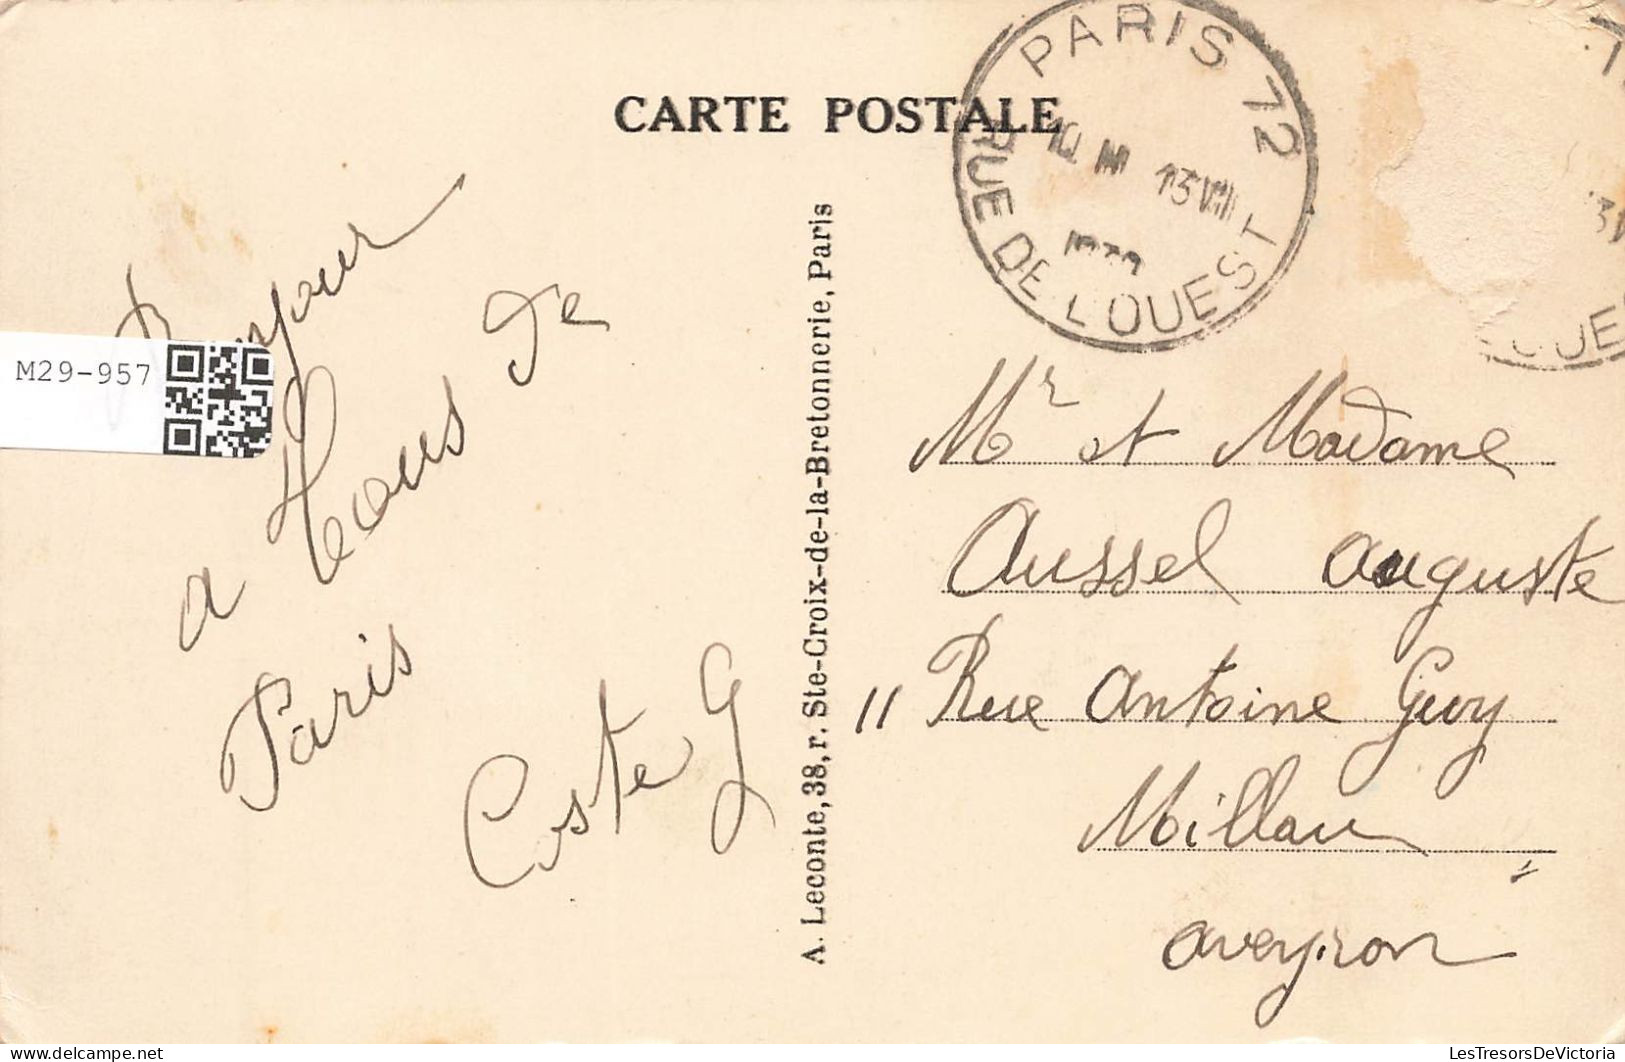 CARTE POSTALE
PARIS 72
RUE DE L'OUEST
10 M 13 VIII
M29-957
Bonjour
a Tous de
Paris
Coste G
A. Leconte, 38, r. Ste-Croix-de-la-Bretonnerie, Paris
Mr et Madame
Aussel Auguste
11 Rue Antoine Guy
Millau
Aveyron
LesTresorsDeVictoria